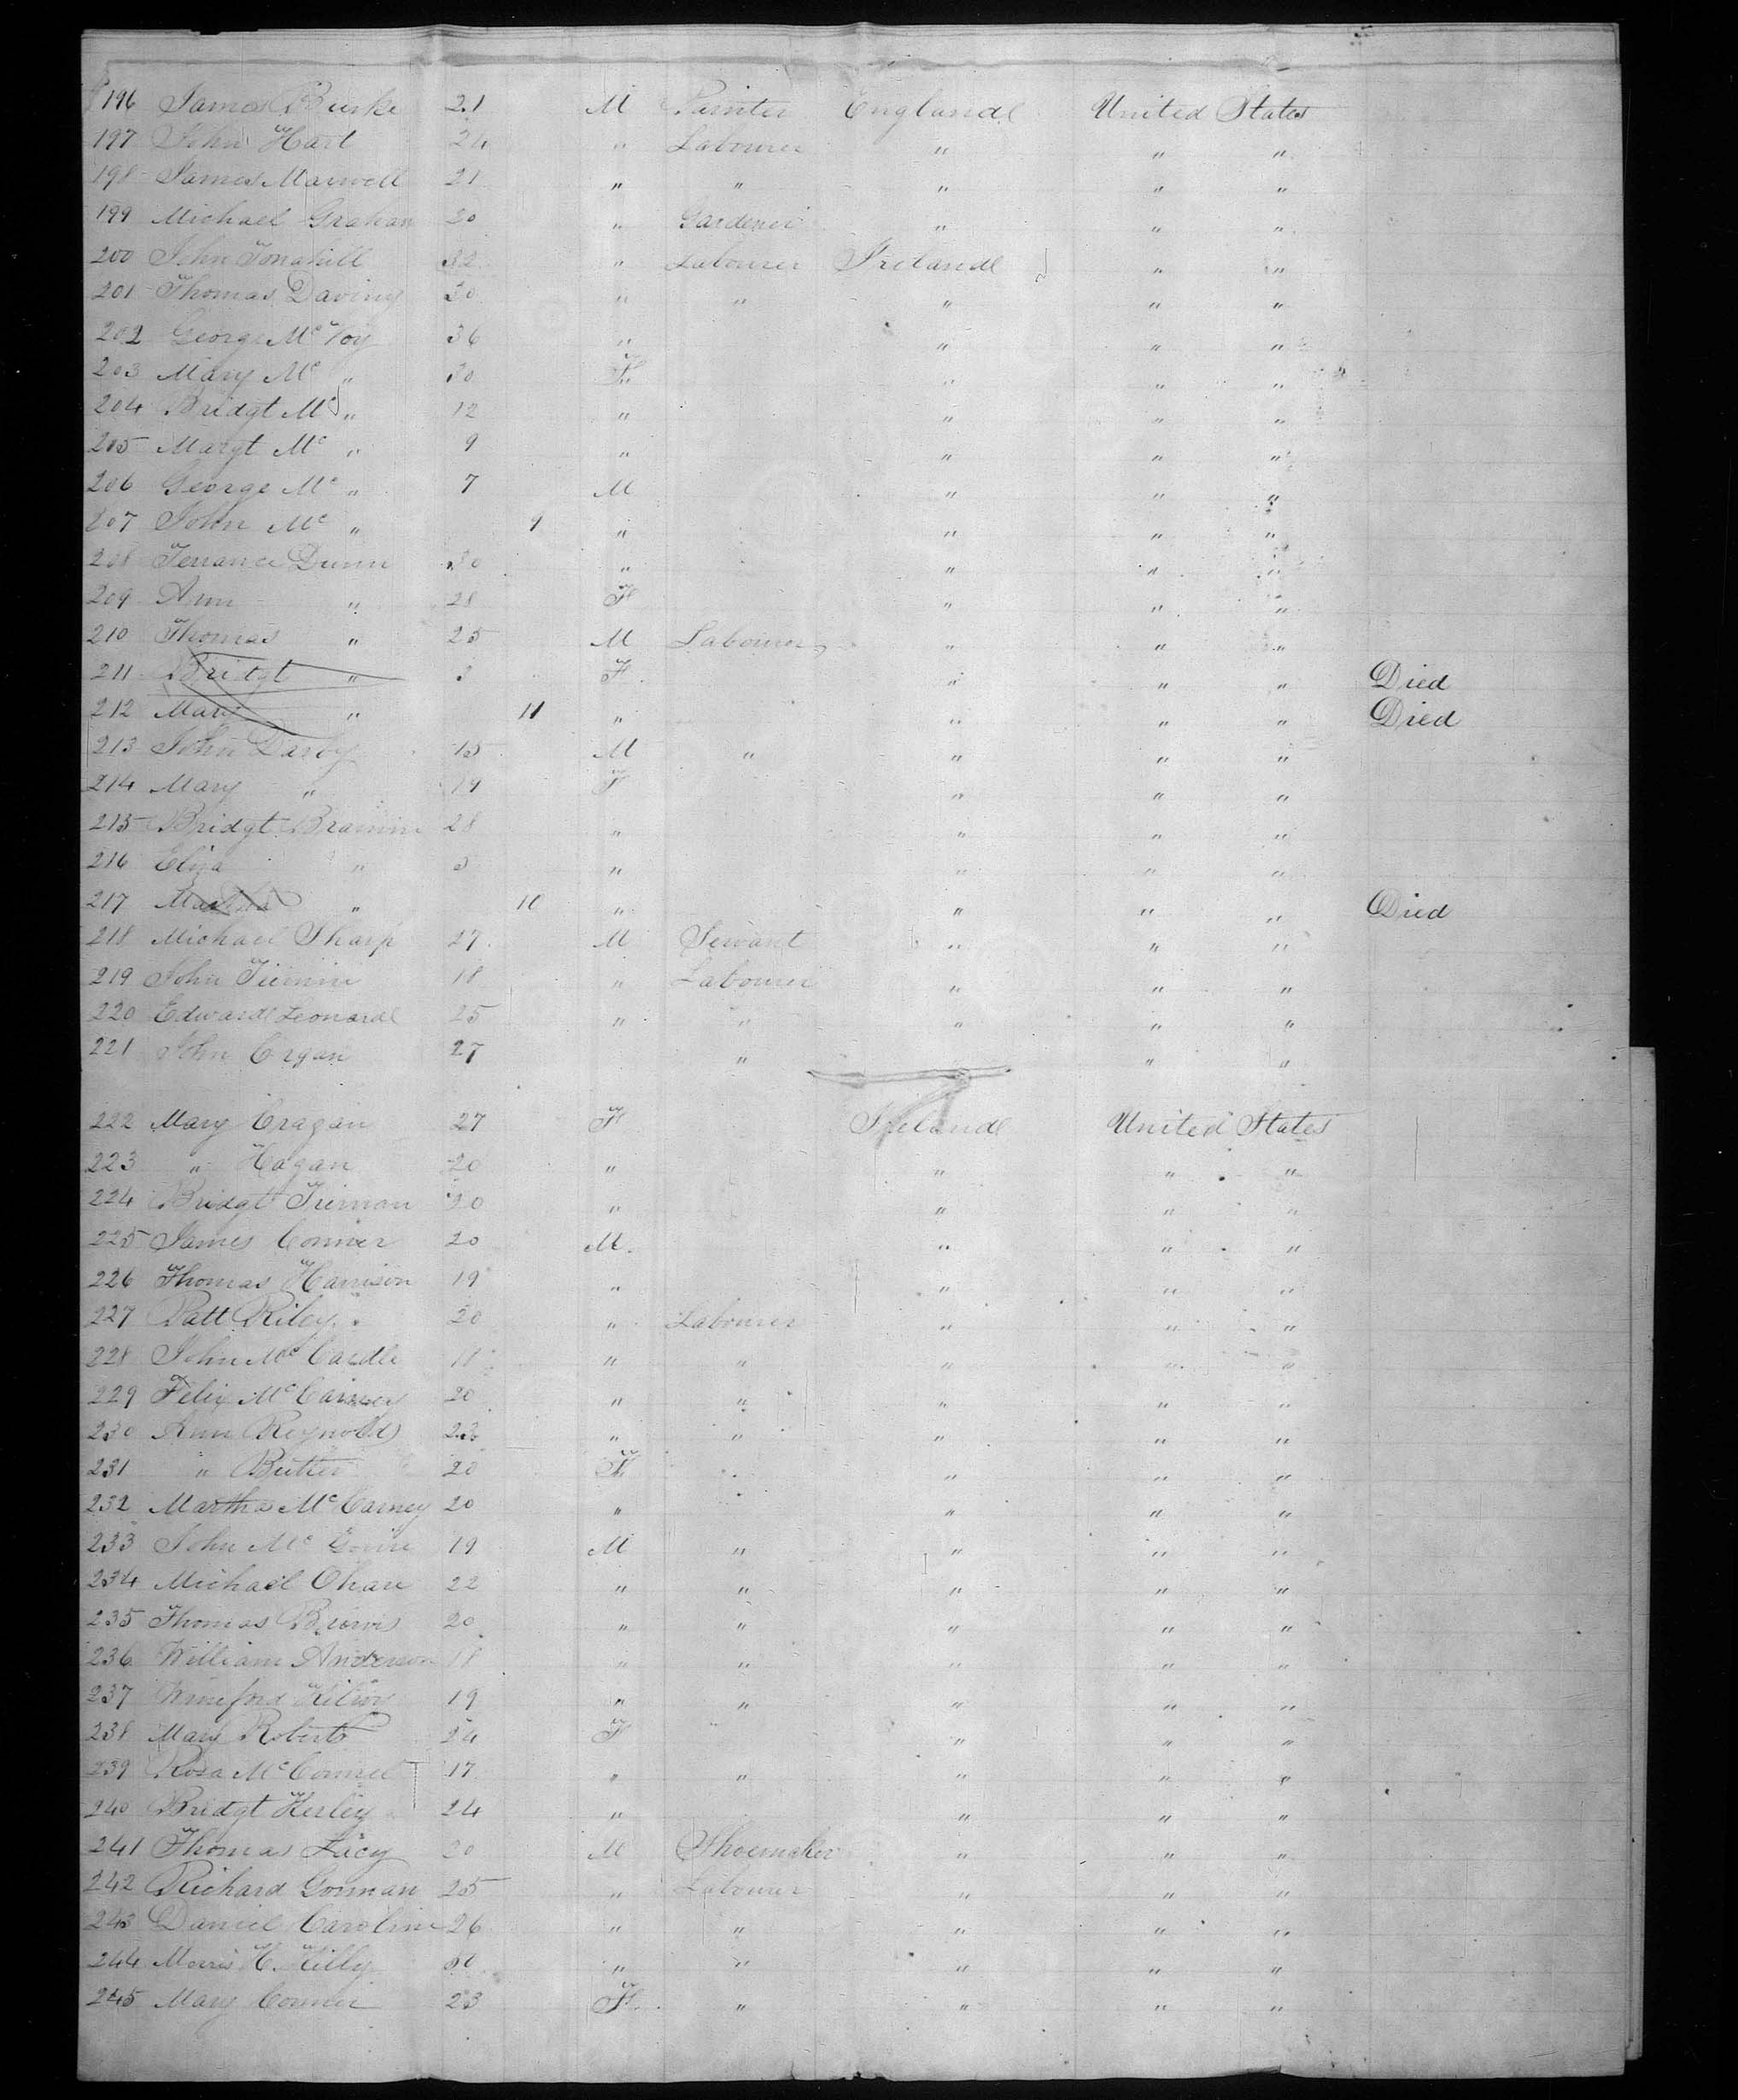 196 James Burke 21 M Painter England United States
197 John Hart 24 " Labourer " " "
198 James Maxwell 21 " " " " "
199 Michael Graham 20 " Gardener " " "
200 John Tonahill 32 " Labourer Ireland " "
201 Thomas Daviny 30 " " " " "
202 George Mc Voy 36 " " " "
203 Mary Mc " 30 F " " "
204 Bridgt Mc " 12 " " " "
205 Margt Mc " 9 " " " "
206 George Mc " 7 M " " "
207 John Mc " 9 " " " "
208 Terrance Dunn 30 " " " "
209 Ann " 28 F " " "
210 Thomas " 25 M Labourer " " "
211 Bridgt " 3 F " " " Died
212 Mary " 11 " " " " Died
213 John Darby 15 M " " " "
214 Mary " 19 F " " "
215 Bridgt 28 " " " "
216 Eliza " 3 " " " "
217 Martha " 10 " " " " Died
218 Michael Sharp 27 M Servant " " "
219 John 18 " Labourer " " "
220 Edward Leonard 25 " " " " "
221 John Cregan 27 " " "
222 Mary Cragan 27 F Ireland United States
223 " Hagan 20 " " " "
224 Bridgt Trimon 20 " " " "
225 James Conner 20 M " " "
226 Thomas Harrison 19 " " " "
227 Patt Riley 20 " Labourer " " "
228 John Mc Cardle 18 " " " " "
229 Felix Mc Carney 20 " " " " "
230 Ann Reynolds 23 " " " " "
231 " Butler 20 F " " "
232 Martha Mc Carney 20 " " " "
233 John Mc 19 M " " " "
234 Michael Ohare 22 " " " " "
235 Thomas Brown 20 " " " " "
236 William Anderson 18 " " " " "
237 Wineford 19 " " " " "
238 Mary Roberts 24 F " " " "
239 Rosa Mc Connel 17 " " " " "
240 Bridgt Kerley 24 " " " "
241 Thomas Lacy 20 M Shoemaker " " "
242 Richard Gorman 25 " Labourer " " "
243 Daniel Caroline 26 " " " " "
244 Morris H. Killy 30 " " " " "
245 Mary Conner 23 F " " " "